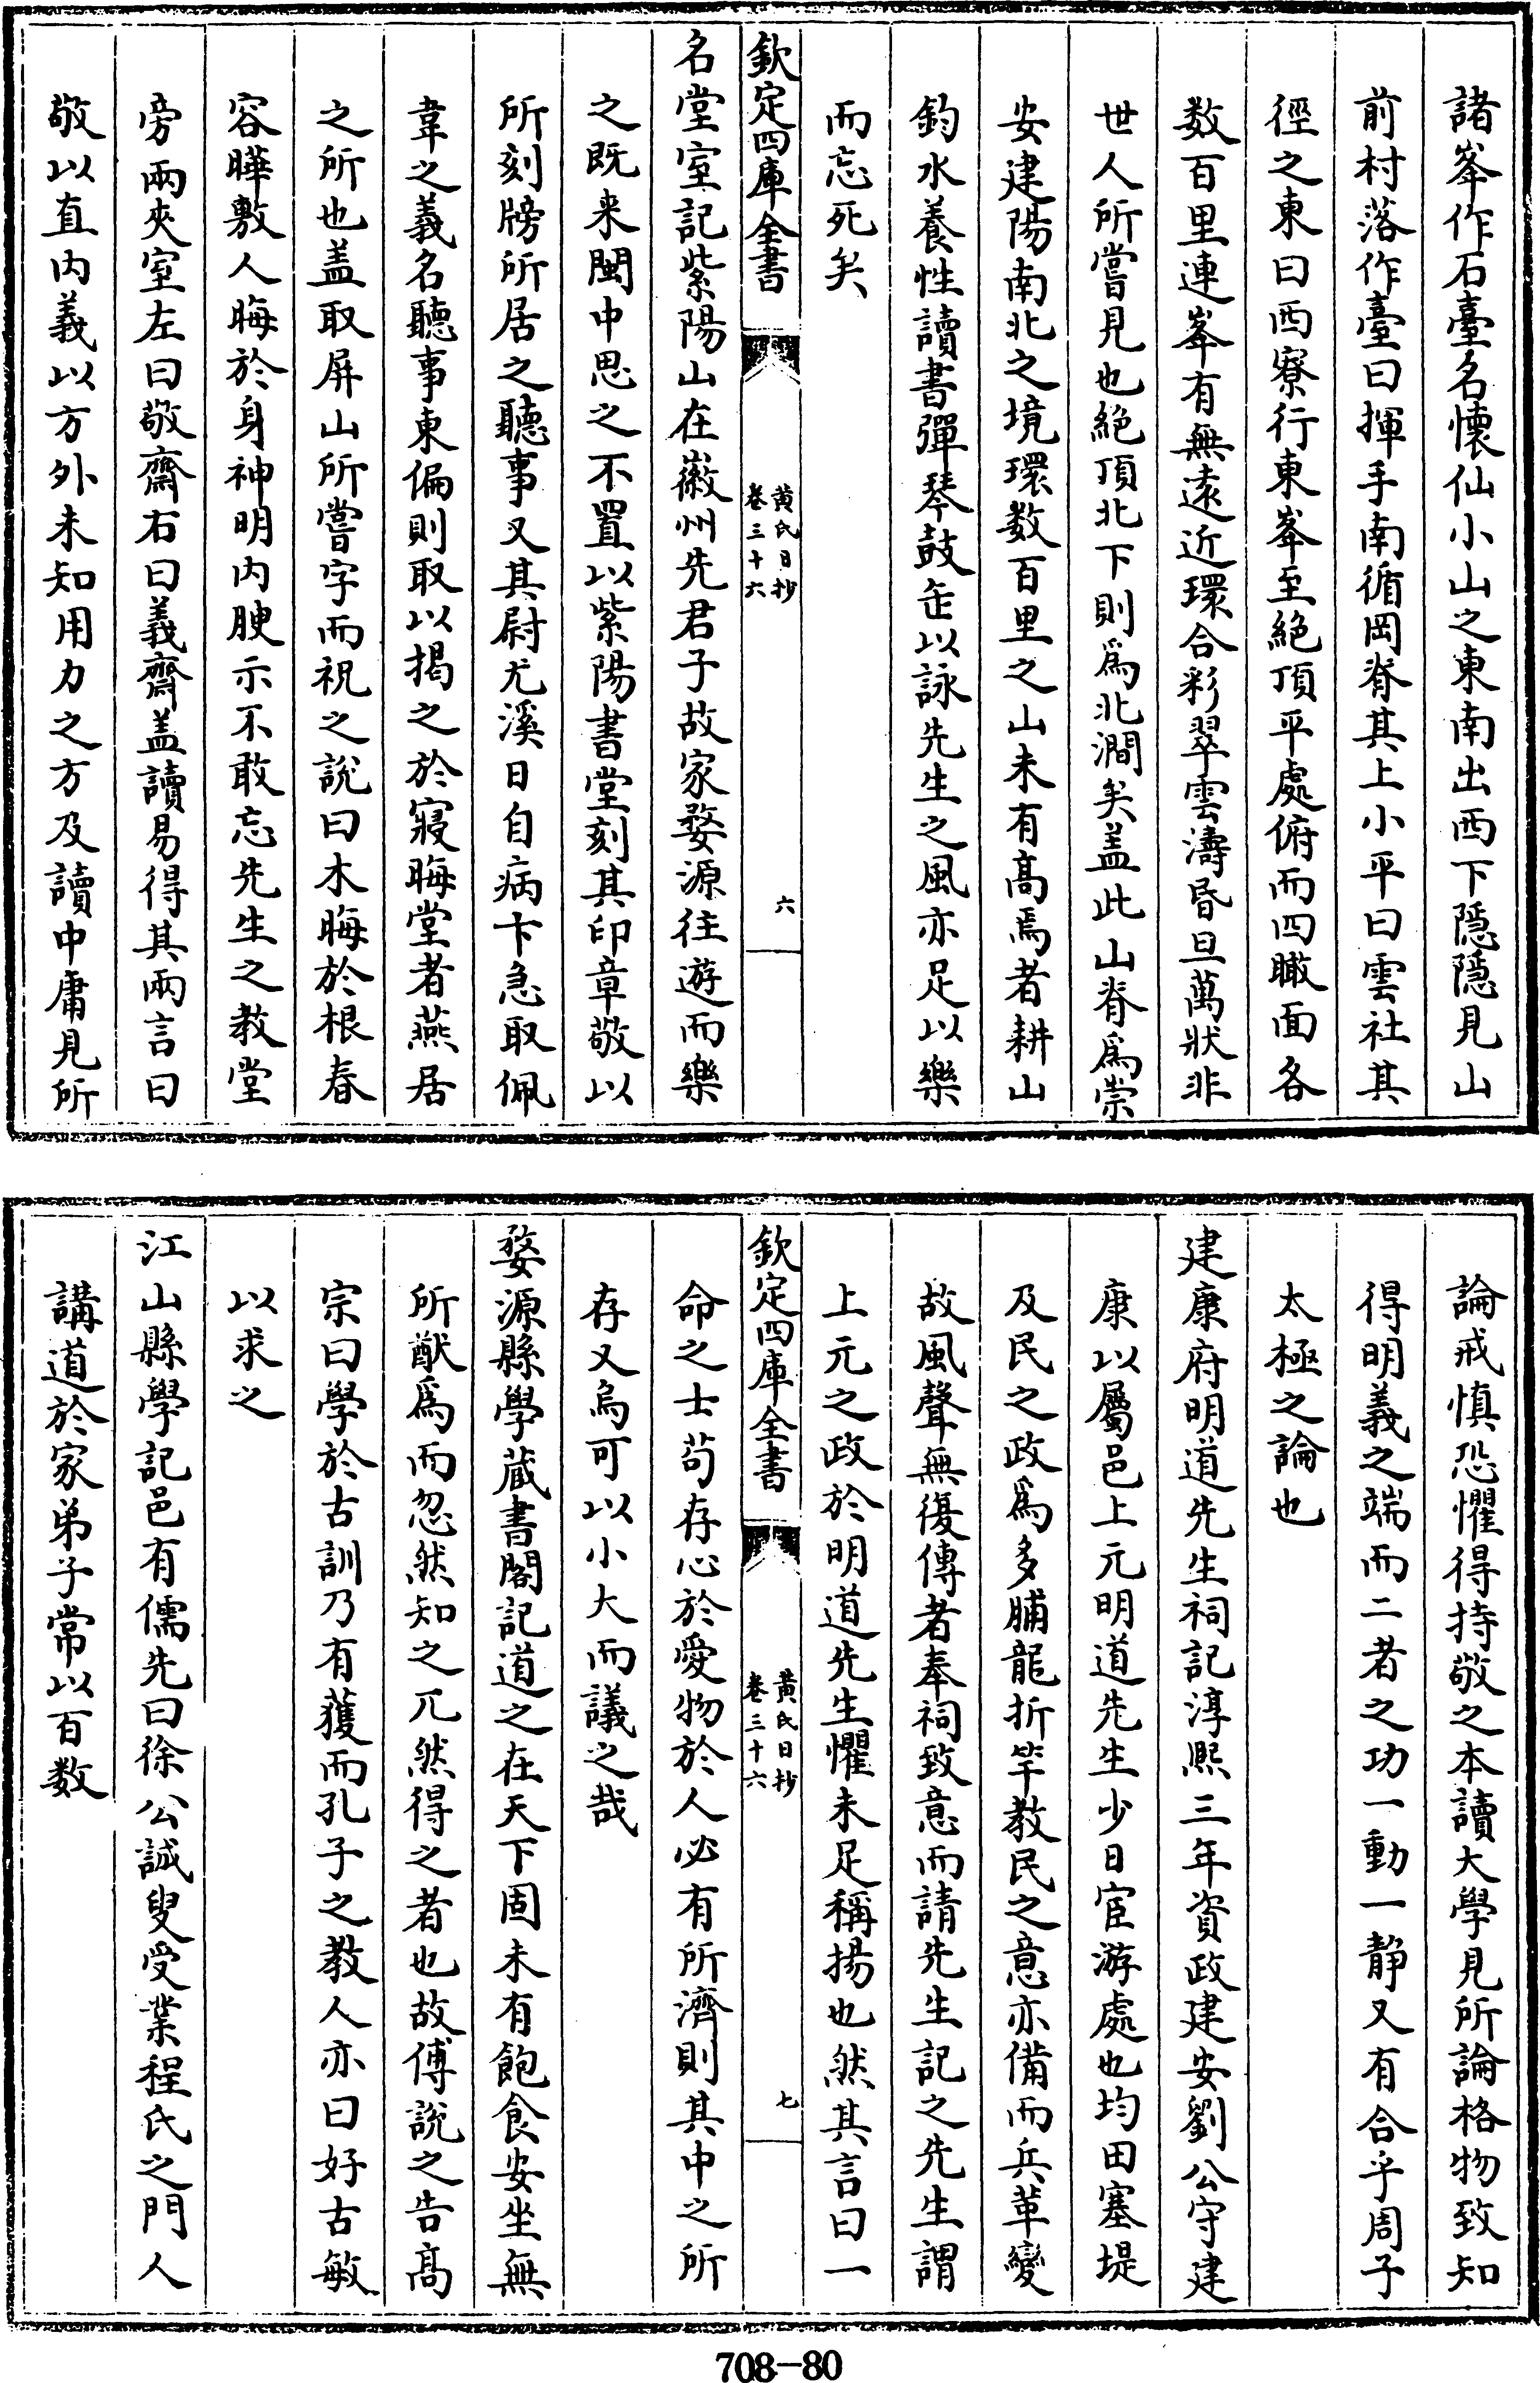 諸峯作石臺名懷仙小山之東南出西下隠隠見山
前村落作臺曰揮手南循岡脊其上小平曰雲社其
徑之東曰西寮行東峯至絶頂平處俯而四瞰面各
数百里連峯有無遠近環合彩翠雲濤昏旦萬狀非
世人所嘗見也絶頂北下則爲北澗矣盖此山脊爲崇
安建陽南北之境環数百里之山未有髙焉者耕山
釣水養性讀書彈琴鼓缶以詠先生之風亦足以樂
而忘死矣
欽定四庫全書
黄氏日抄
卷三十六
六
名堂室記紫陽山在徽州先君子故家婺源往遊而樂
之既来閩中思之不置以紫陽書堂刻其印章敬以
所刻牓所居之聽事又其尉尤溪日自病卞急取佩
韋之義名聽事東偏則取以揭之於寢晦堂者燕居
之所也盖取屏山所嘗字而祝之說曰木晦於根春
容曄敷人晦於身神明内腴示不敢忘先生之教堂
旁兩夾室左曰敬齋右曰義齋盖讀易得其兩言曰
敬以直内義以方外未知用力之方及讀中庸見所
論戒慎恐懼得持敬之本讀大學見所論格物致知
得明義之端而二者之功一動一静又有合乎周子
太極之論也
建康府明道先生祠記淳熈三年資政建安劉公守建
康以屬邑上元明道先生少日宦游處也均田塞堤
及民之政爲多脯龍折竿教民之意亦備而兵革變
故風聲無復傳者奉祠致意而請先生記之先生謂
上元之政於明道先生懼未足稱揚也然其言曰一
欽定四庫全書
黄氏日抄
卷三十六
七
命之士苟存心於愛物於人必有所濟則其中之所
存又烏可以小大而議之哉
婺源縣學藏書閣記道之在天下固未有飽食安坐無
所猷爲而忽然知之兀然得之者也故傅說之告髙
宗曰學於古訓乃有獲而孔子之教人亦曰好古敏
以求之
江山縣學記邑有儒先曰徐公誠叟受業程氏之門人
講道於家弟子常以百数
708-80